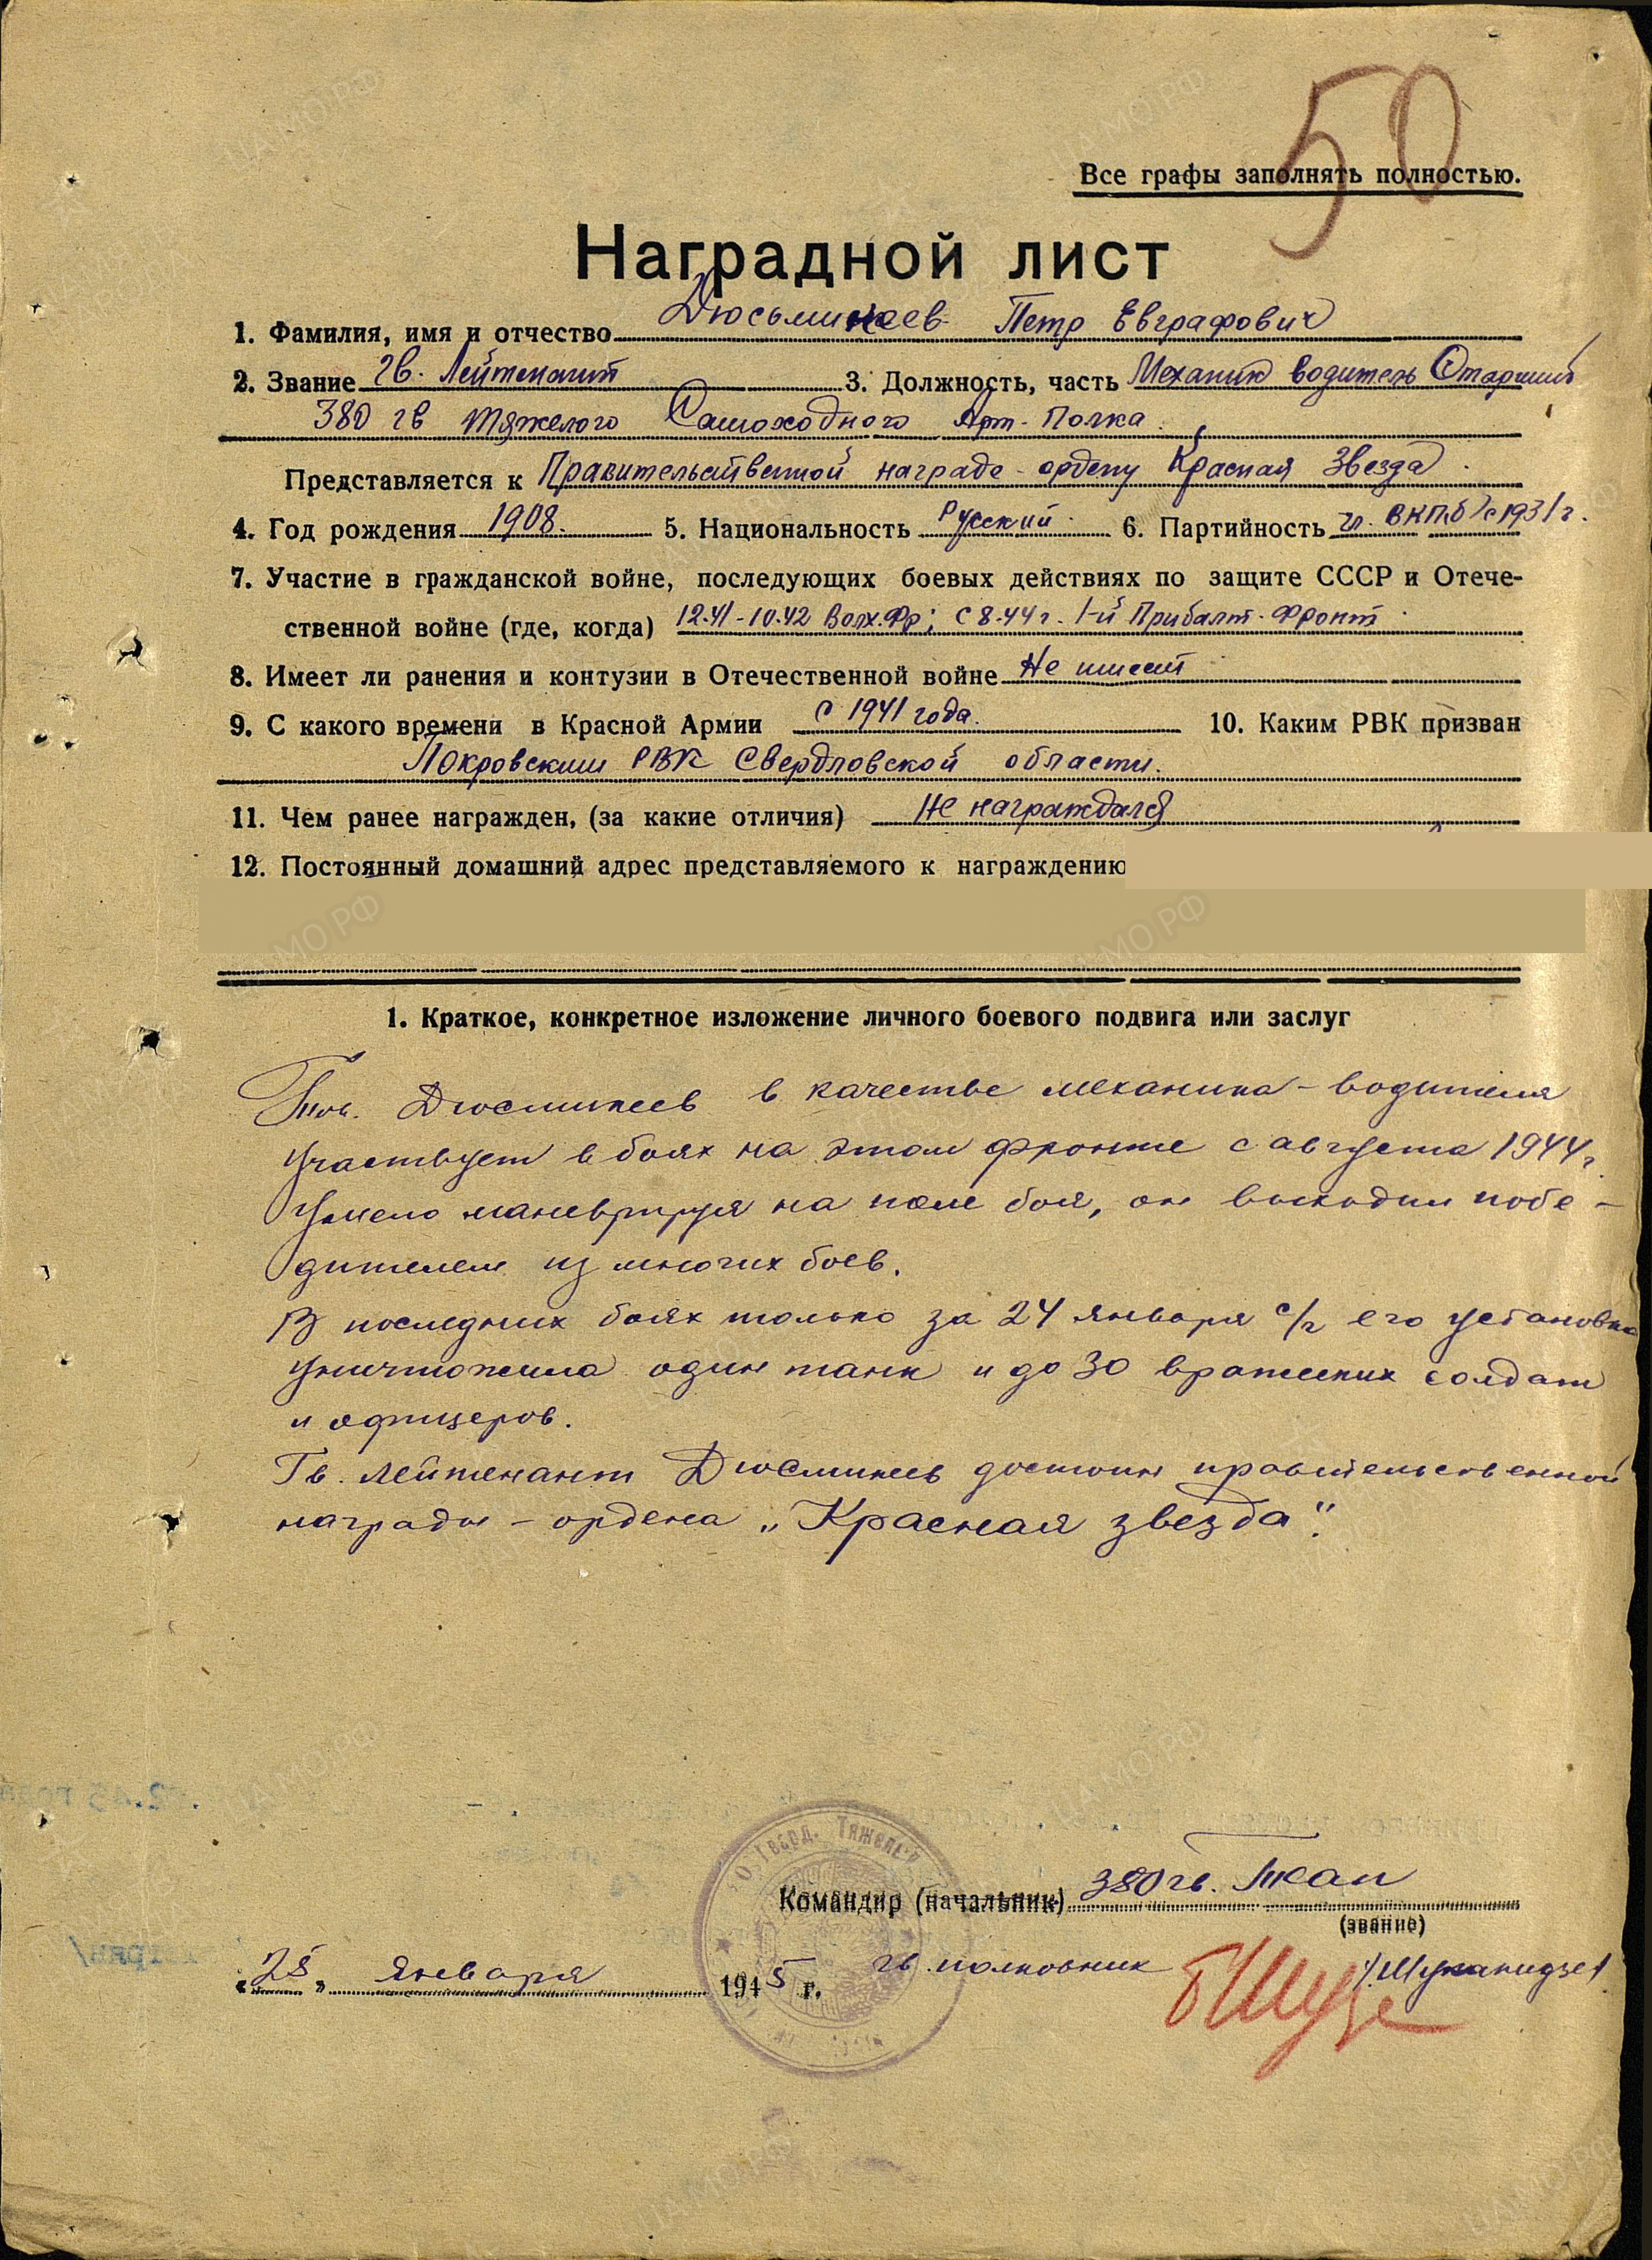 50
Все графы заполнять полностью.
Наградной лист
1. Фамилия, имя и отчество Дюсьмикеев Петр Евграфович
2. Звание гв. Лейтенант 3. Должность, часть Механик водитель Старший
380 гв тяжелого Самоходного Арт. полка.
Представляется к Правительственной награде - ордену Красная Звезда.
4. Год рождения 1908. 5. Национальность Русский 6. Партийность чл. ВКП(б) с 1931 г.
7. Участие в гражданской войне, последующих боевых действиях по защите СССР и Отече-
ственной войне (где, когда) 12.41-10.42 Волх.Фр; с 8.44 г. 1-й Прибалт. Фронт
8. Имеет ли ранения и контузии в Отечественной войне Не имеет
9. С какого времени в Красной Армии с 1941 года. 10. Каким РВК призван
Покровским РВК Свердловской области.
11. Чем ранее награжден, (за какие отличия) Не награждался
12. Постоянный домашний адрес представляемого к награждению
1. Краткое, конкретное изложение личного боевого подвига или заслуг
Тов. Дюсмикеев в качестве механика-водителя
участвует в боях на этом фронте с августа 1944 г.
Умело маневрируя на поле боя, он выходил побе-
дителем из многих боев.
В последних боях только за 24 января с/г его установка
уничтожила один танк и до 30 вражеских солдат
и офицеров.
Гв. лейтенант Дюсмикеев достоин правительственной
награды - ордена „Красная звезда".
Гвард. Тяжелый
Командир (начальник) 380 гв. тсап
(звание)
гв. полковник /Шуканидзе/
„25" Января 1945 г.
ЦАМО РФ